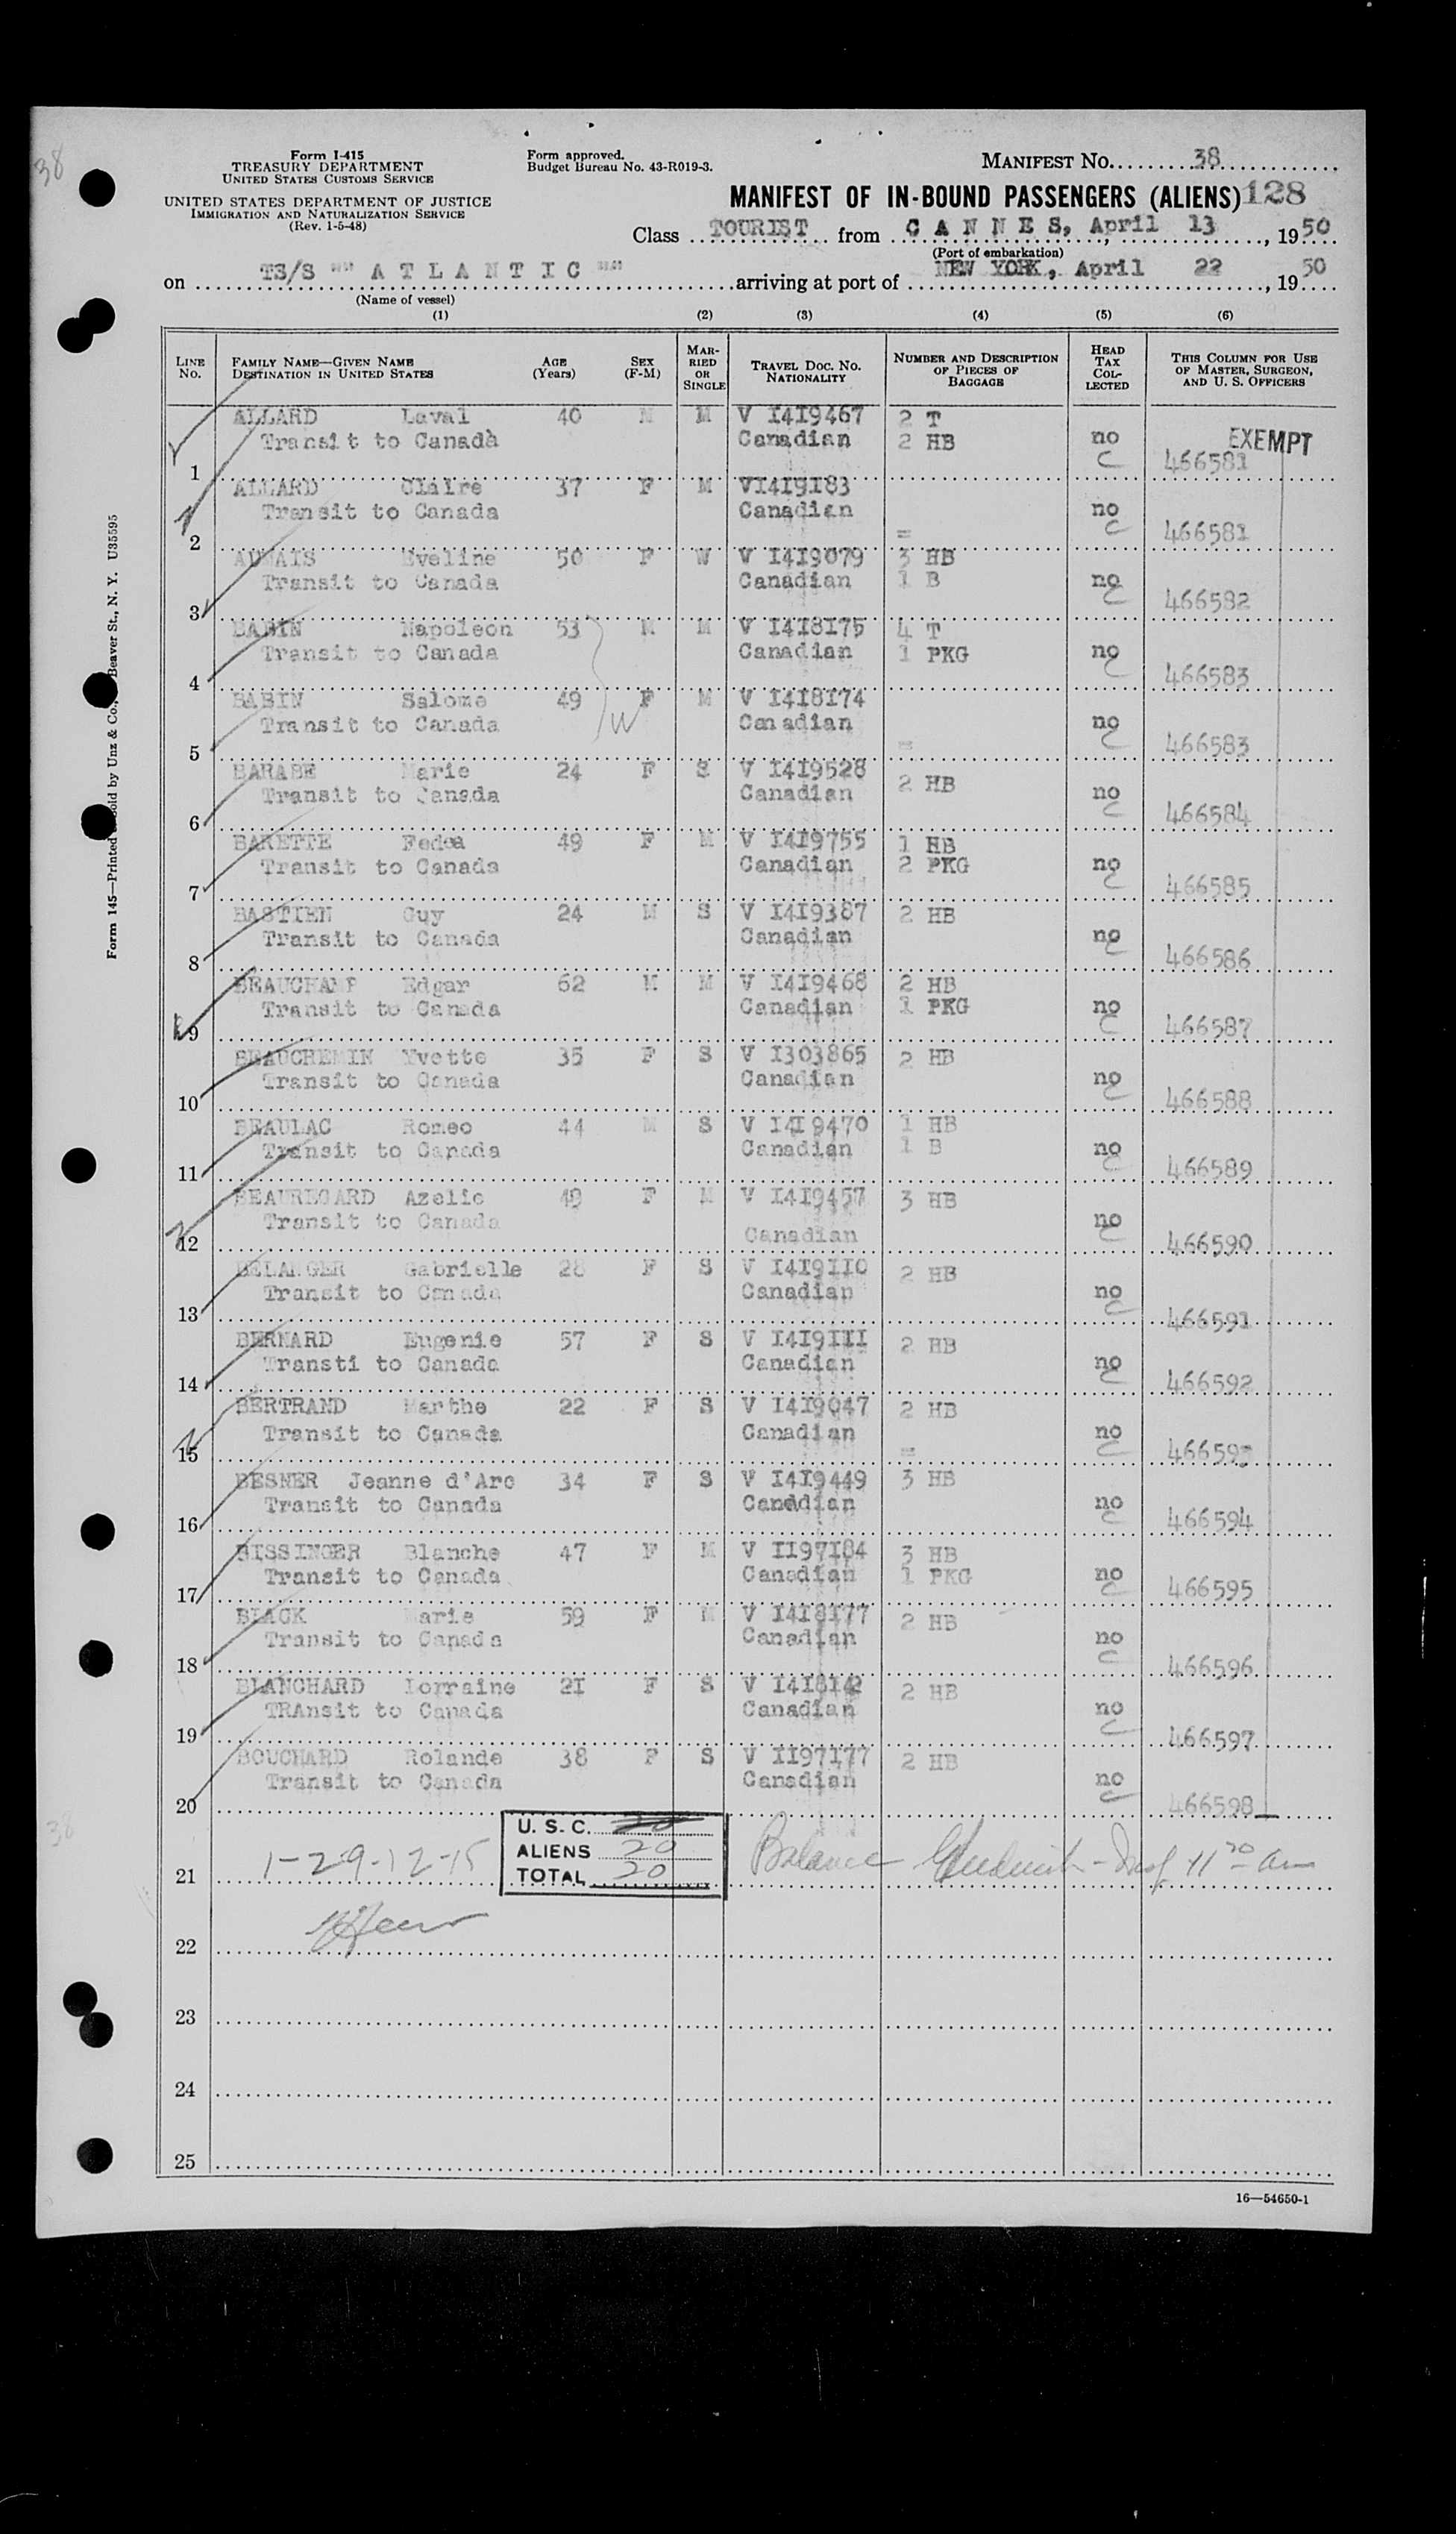 38
Form I-415
TREASURY DEPARTMENT
UNITED STATES CUSTOMS SERVICE
UNITED STATES DEPARTMENT OF JUSTICE
IMMIGRATION AND NATURALIZATION SERVICE
(Rev. 1-5-48)
Form approved.
Budget Bureau No. 43-R019-3.
MANIFEST No. 38
MANIFEST OF IN-BOUND PASSENGERS (ALIENS) 128
Class TOURIST from C A N N E S, April 13, 1950
(Port of embarkation)
on TS/S "" A T L A N T I C "" arriving at port of NEW YORK, April 22, 1950
(Name of vessel)
(1) (2) (3) (4) (5) (6)
LINE No. FAMILY NAME—GIVEN NAME DESTINATION IN UNITED STATES AGE (Years) SEX (F-M) MARRIED OR SINGLE TRAVEL DOC. NO. NATIONALITY NUMBER AND DESCRIPTION OF PIECES OF BAGGAGE HEAD TAX COLLECTED THIS COLUMN FOR USE OF MASTER, SURGEON, AND U. S. OFFICERS
ALLARD Laval 40 M M V I4I9467 2 T
Transit to Canada Canadian 2 HB no EXEMPT
1 c 466581
ALLARD Claire 37 F M VI4I9I83
Transit to Canada Canadian no
2 = c 466581
AUNAIS Eveline 50 F W V I4I9079 3 HB
Transit to Canada Canadian 1 B no
3 c 466582
BABIN Napoleon 53 M M V I4I8I75 4 T
Transit to Canada Canadian 1 PKG no
4 c 466583
BABIN Salome 49 F M V I4I8I74
Transit to Canada W Canadian no
5 = c 466583
BARABE Marie 24 F S V I4I9528 2 HB
Transit to Canada Canadian no
6 c 466584
BARETTE Fedea 49 F M V I4I9755 1 HB
Transit to Canada Canadian 2 PKG no
7 c 466585
BASTIEN Guy 24 M S V I4I9387 2 HB
Transit to Canada Canadian no
8 c 466586
BEAUCHAMP Edgar 62 M M V I4I9468 2 HB
Transit to Canada Canadian 1 PKG no
9 c 466587
BEAUCHEMIN Yvette 35 F S V I303865 2 HB
Transit to Canada Canadian no
10 c 466588
BEAULAC Romeo 44 M S V I4I9470 1 HB
Transit to Canada Canadian 1 B no
11 c 466589
BEAUREGARD Azelie 49 F M V I4I9457 3 HB
Transit to Canada Canadian no
12 c 466590
BELANGER Gabrielle 28 F S V I4I9II0 2 HB
Transit to Canada Canadian no
13 c 466591
BERNARD Eugenie 57 F S V I4I9III 2 HB
Transti to Canada Canadian no
14 c 466592
BERTRAND Marthe 22 F S V I4I9047 2 HB
Transit to Canada Canadian no
15 = c 466593
BESNER Jeanne d'Arc 34 F S V I4I9449 3 HB
Transit to Canada Canadian no
16 c 466594
BISSINGER Blanche 47 F M V II97I84 3 HB
Transit to Canada Canadian 1 PKG no
17 c 466595
BLACK Marie 59 F M V I4I8I77 2 HB
Transit to Canada Canadian no
18 c 466596
BLANCHARD Lorraine 2I F S V I4I8I42 2 HB
TRAnsit to Canada Canadian no
19 c 466597
BOUCHARD Rolande 38 F S V II97I77 2 HB
Transit to Canada Canadian no
20 c 466598
U. S. C.
ALIENS 20
TOTAL 20
21 1-29-12-15 Balance Insp 11 20 am
22
23
24
25
16—54650-1
Form 145—Printed Sold by Unz & Co., Beaver St., N. Y. U35595
38